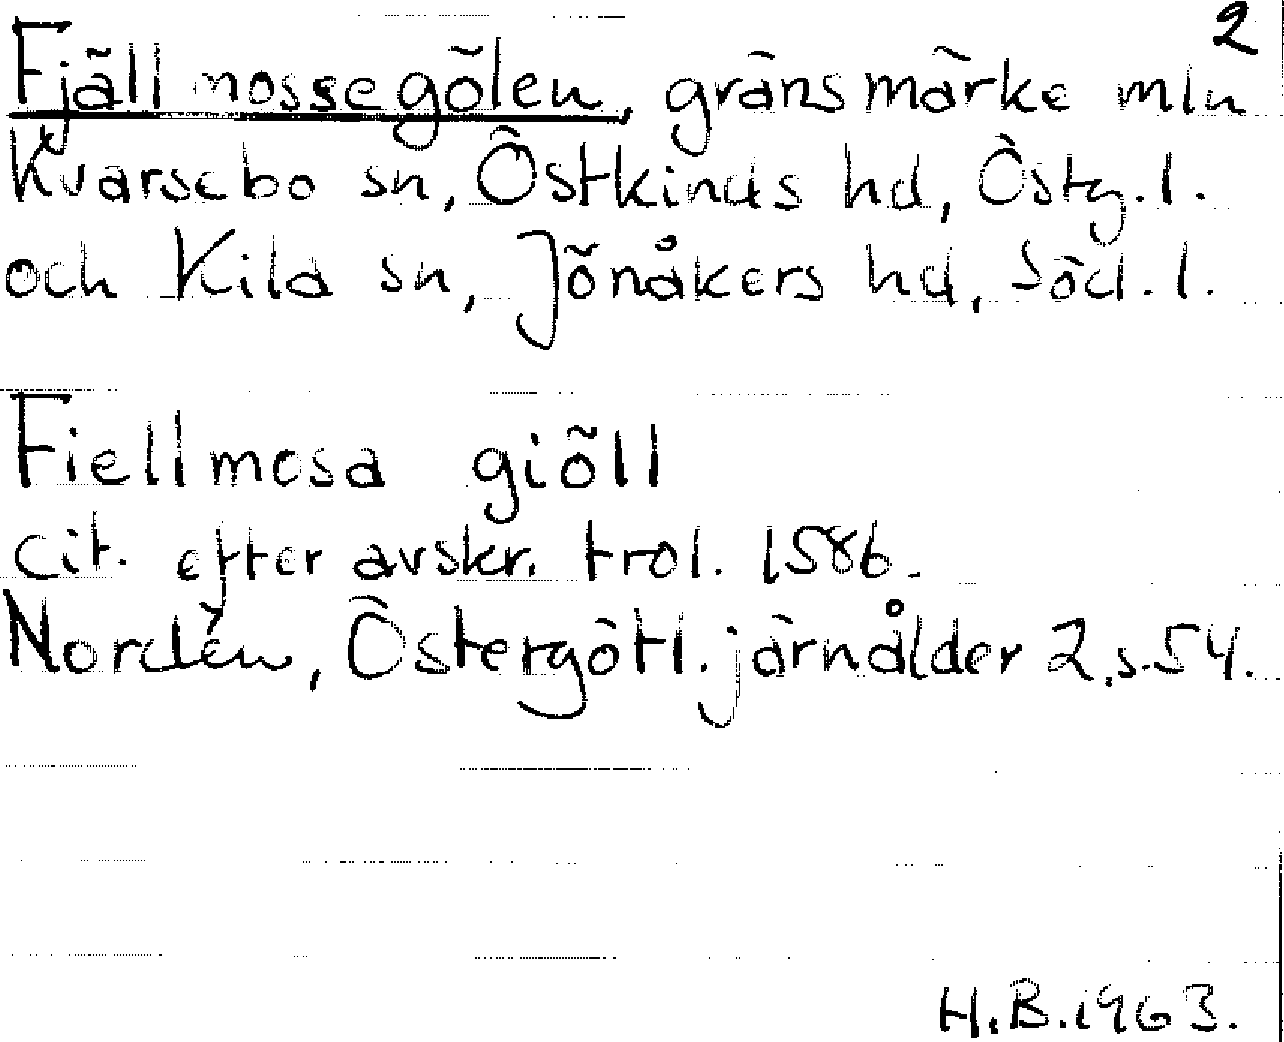 2
Fjällmossegölen, gränsmärke mln
Kvarsebo sn, Östkinds hd, Östg.l.
och Kila sn, Jönåkers hd, Söd.l.
Fiellmosa giöll
cit. efter avskr. trol. 1586.
Nordén, Östergötl. järnålder 2,s.54.
H.B.1963.